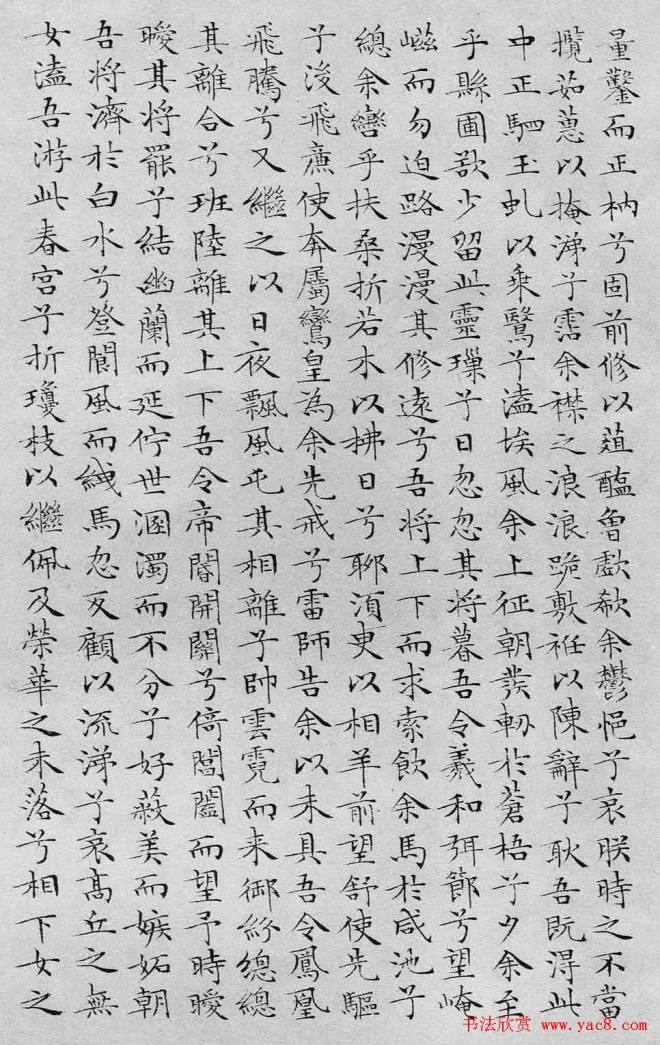 量鑿而正枘兮固前修以葅醢曾歔欷余鬱悒兮哀朕時之不當
攬茹蕙以掩涕兮霑余襟之浪浪跪敷衽以陳辭兮耿吾既得此
中正駟玉虬以乘鷖兮溘埃風余上征朝發軔於蒼梧兮夕余至
乎縣圃欲少留此靈璅兮日忽忽其將暮吾令羲和弭節兮望崦
嵫而勿迫路漫漫其修遠兮吾將上下而求索飲余馬於咸池兮
總余轡乎扶桑折若木以拂日兮聊須臾以相羊前望舒使先驅
兮後飛廉使奔屬鸞皇為余先戒兮雷師告余以未具吾令鳳凰
飛騰兮又繼之以日夜飄風屯其相離兮帥雲霓而来御紛總總
其離合兮班陸離其上下吾令帝閽開關兮倚閶闔而望予時曖
曖其將罷兮結幽蘭而延佇世溷濁而不分兮好蔽美而嫉妬朝
吾將濟於白水兮登閬風而緤馬忽反顧以流涕兮哀高丘之無
女溘吾游此春宮兮折瓊枝以繼佩及榮華之未落兮相下女之
书法欣赏 www.yac8.com